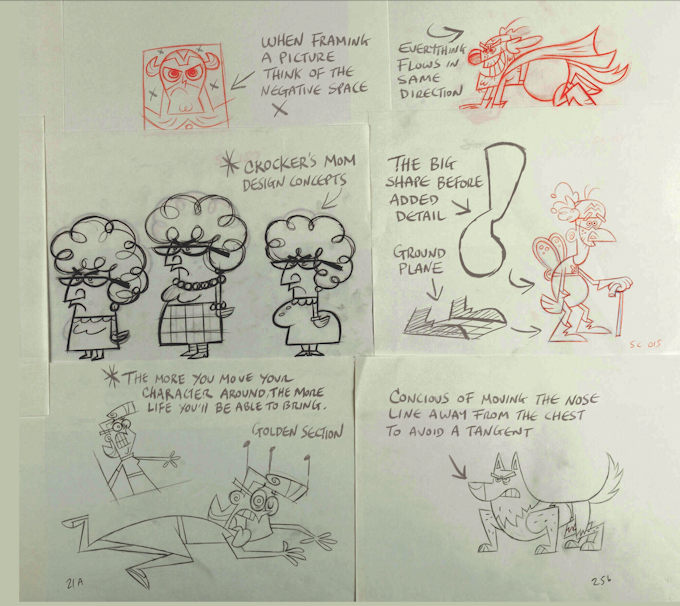 WHEN FRAMING
A PICTURE
THINK OF THE
NEGATIVE SPACE
X
EVERYTHING
FLOWS IN
SAME
DIRECTION
* CROCKER'S MOM
DESIGN CONCEPTS
THE BIG
SHAPE BEFORE
ADDED
DETAIL
GROUND
PLANE
SC 015
* THE MORE YOU MOVE YOUR
CHARACTER AROUND, THE MORE
LIFE YOU'LL BE ABLE TO BRING.
GOLDEN SECTION
21A
CONCIOUS OF MOVING THE NOSE
LINE AWAY FROM THE CHEST
TO AVOID A TANGENT